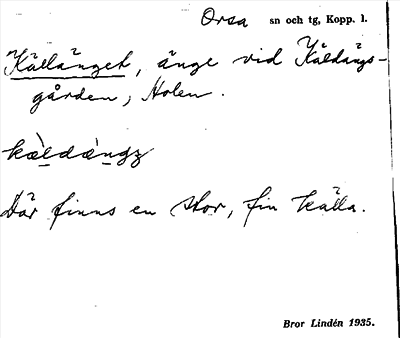 Orsa sn och tg, Kopp. l.
Källänget, änge vid Käldängs-
gården, Holen.
Där finns en stor, fin källa.
Bror Lindén 1935.